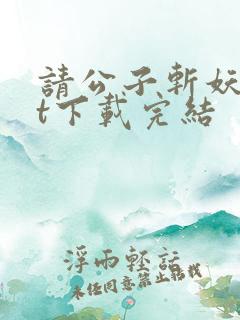 請公子斬妖
t下載完結
浮雨輕話
未任同意禁止轉載